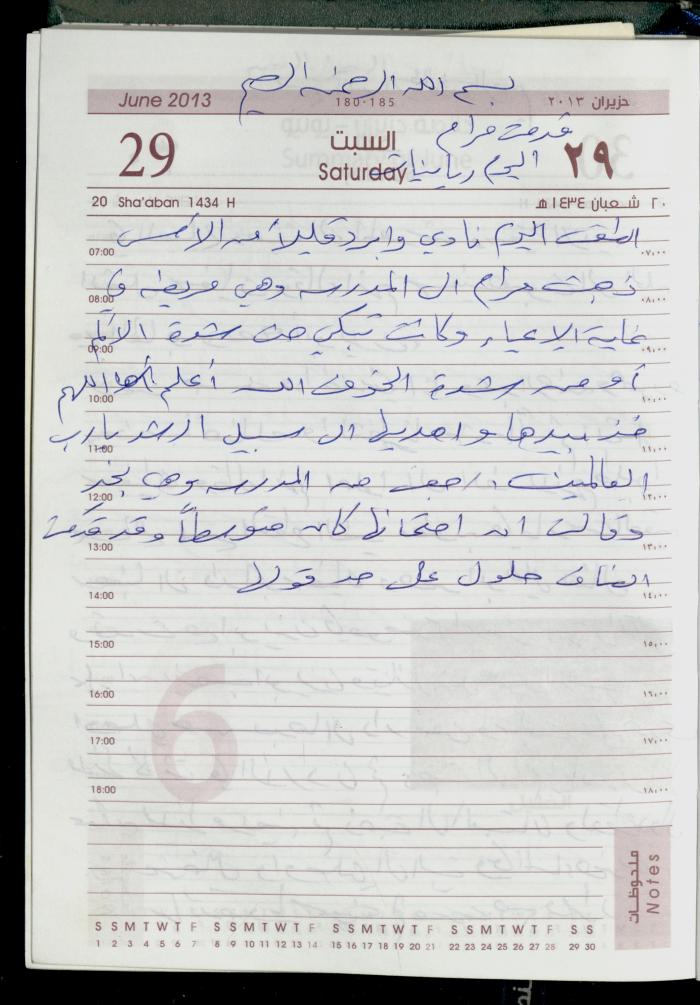 بسم الله الرحمن الرحيم
June 2013 180-185 حزيران ٢٠١٣
قدمت مرام
29 السبت اليوم رياضيات ٢٩
Saturday
20 Sha'aban 1434 H ٢٠ شعبان ١٤٣٤ هـ
الطقس اليوم نادي وابرد قليلاً من الأمس
07:00 ٠٧:٠٠
ذهبت مرام الى المدرسه وهي مريضه في
08:00 ٠٨:٠٠
غاية الاعياء وكانت تبكي من شدة الألم
09:00 ٠٩:٠٠
أو من شدة الخوف الله أعلم اللهم
10:00 ١٠:٠٠
خذ بيدها واهديها الى سبيل الرشد يارب
11:00 ١١:٠٠
العالمين. رجعت من المدرسه وهي بخير
12:00 ١٢:٠٠
وقالت ان امتحانها كان متوسطاً وقد قدمت
13:00 ١٣:٠٠
انصاف حلول على حد قولها
14:00 ١٤:٠٠
15:00 ١٥:٠٠
16:00 ١٦:٠٠
17:00 ١٧:٠٠
18:00 ١٨:٠٠
ملحوظات
Notes
S S M T W T F S S M T W T F S S M T W T F S S M T W T F S S
1 2 3 4 5 6 7 8 9 10 11 12 13 14 15 16 17 18 19 20 21 22 23 24 25 26 27 28 29 30